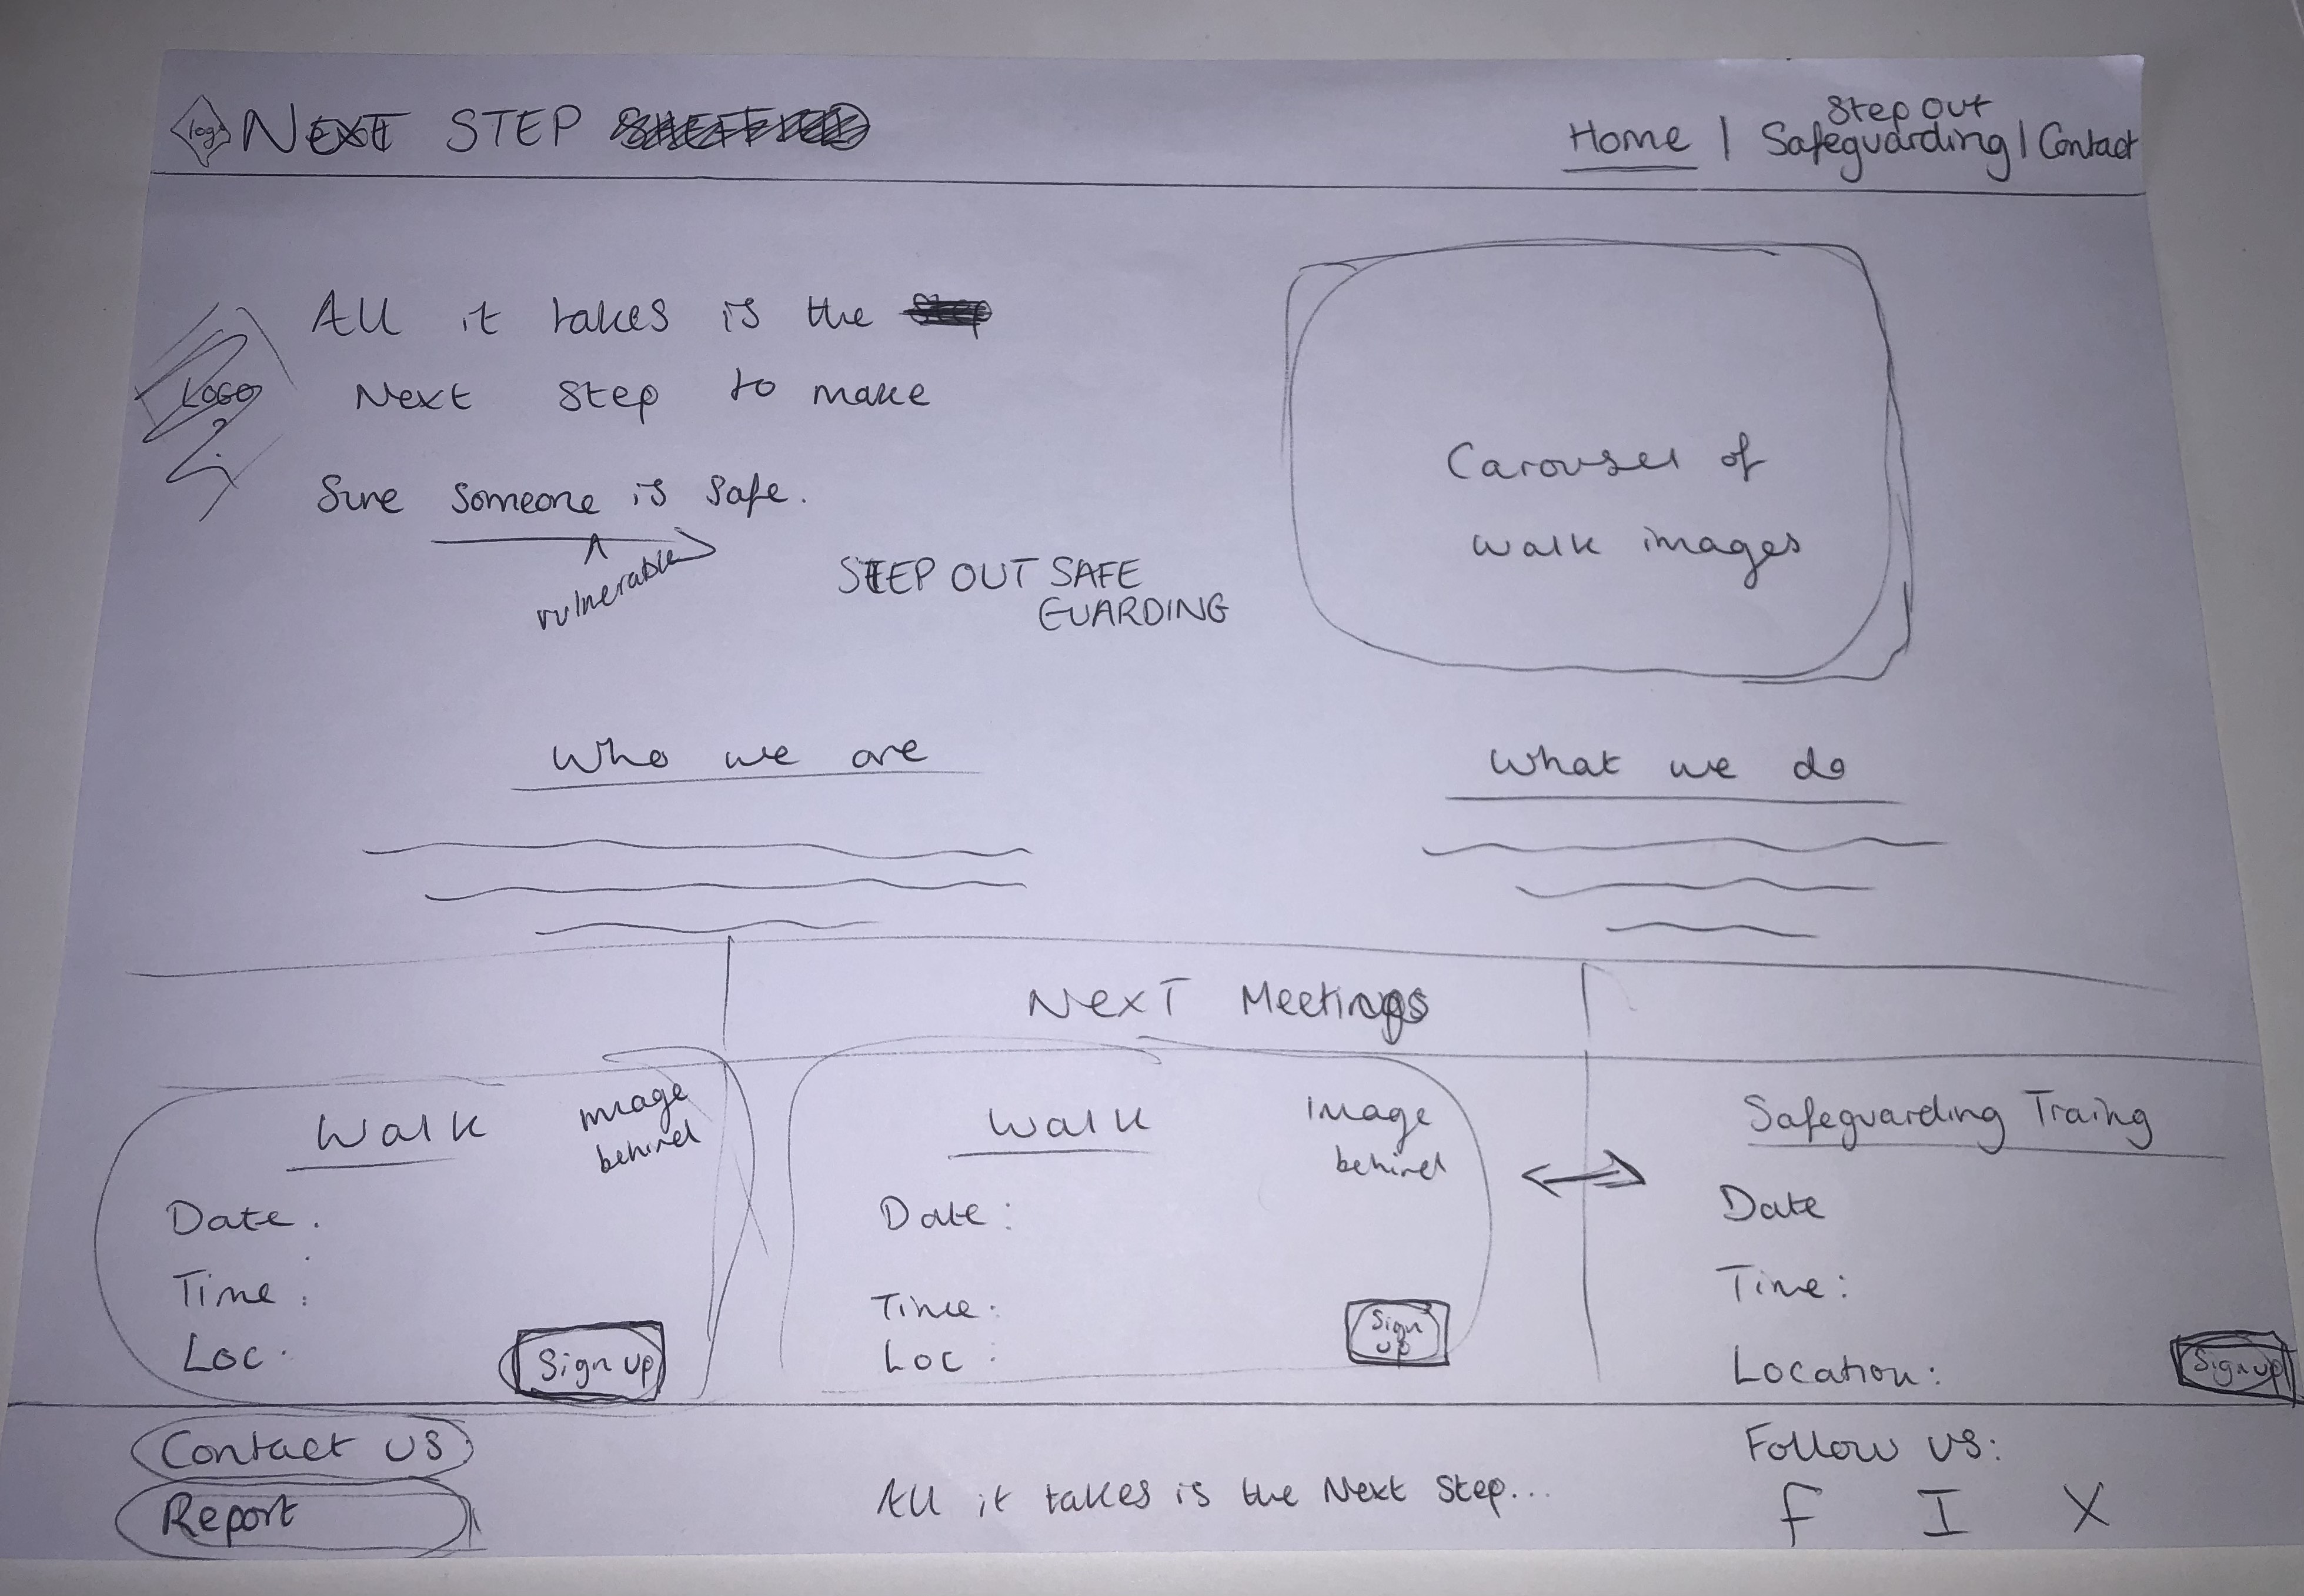 logo NEXT STEP SHEFFIELD
Step Out
Home | Safeguarding | Contact
All it takes is the Step
Next Step to make
LOGO
?
Sure someone is safe.
vulnerable
STEP OUT SAFE
GUARDING
Carousel of
walk images
Who we are
What we do
Next Meetings
Walk
image
behind
Date:
Time:
Loc:
Sign up
Walk
Image
behind
Date:
Time:
Loc:
Sign
up
Safeguarding Traing
Date
Time:
Location:
Sign up
Contact us
Report
All it takes is the Next Step...
Follow us:
f I X